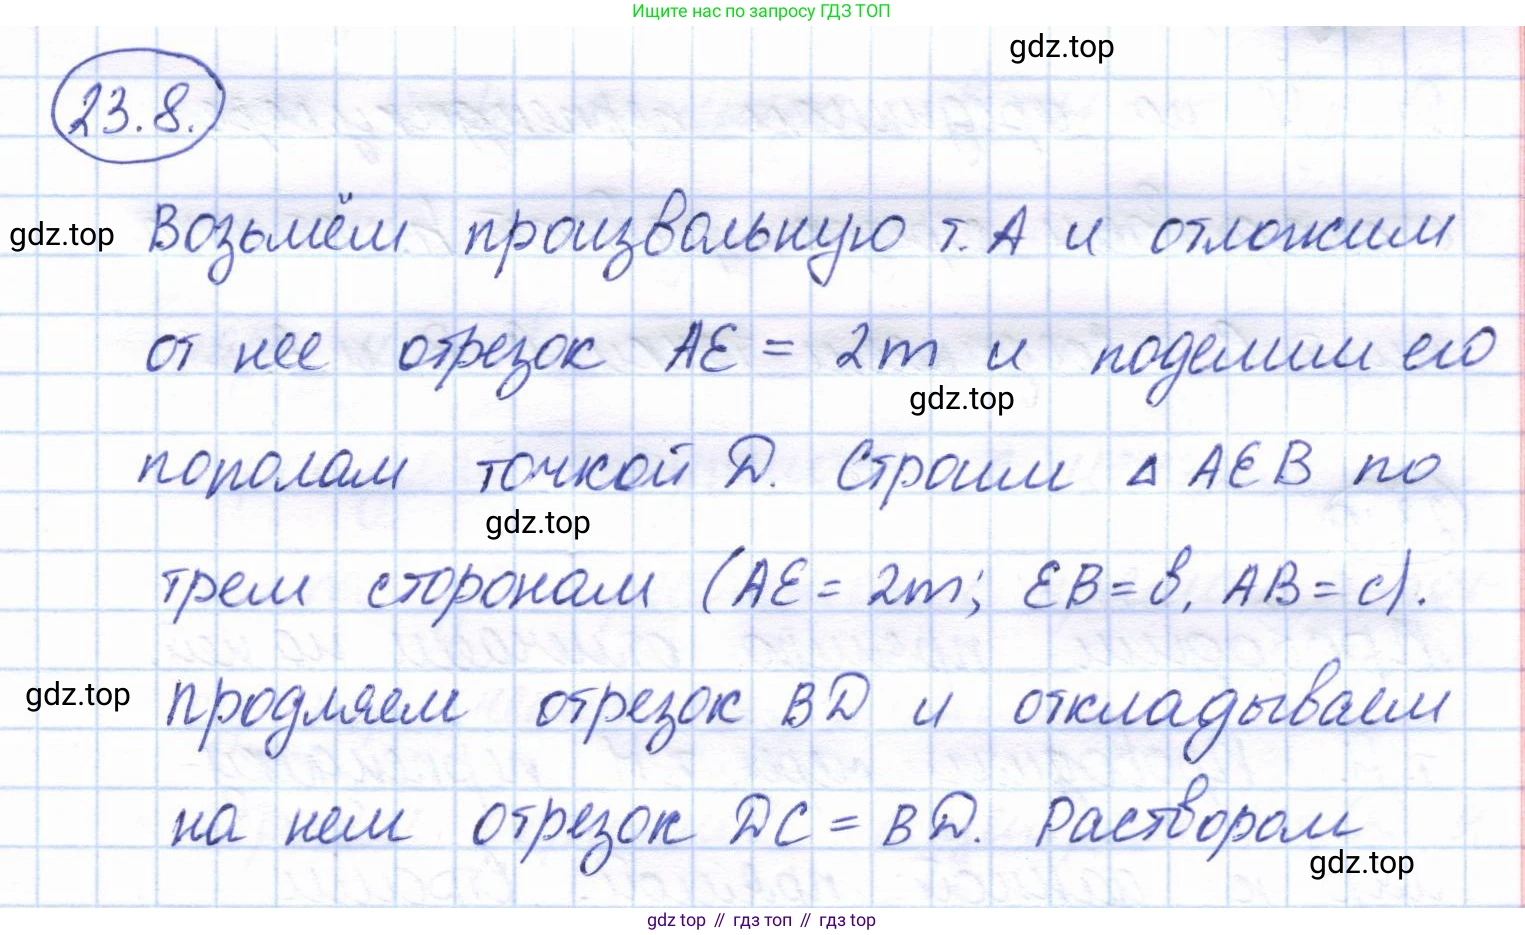 Ищите нас по запросу ГДЗ ТОП
gdz.top
23.8.
gdz.top
Возьмём произвольную т. А и отложим
от нее отрезок AE = 2m и поделим его
gdz.top
пополам точкой D. Строим △ AEB по
gdz.top
трем сторонам (AE = 2m; EB = b, AB = c).
gdz.top
Продляем отрезок BD и откладываем
на нем отрезок DC = BD. Раствором
gdz.top
gdz top // гдз топ // гдз top